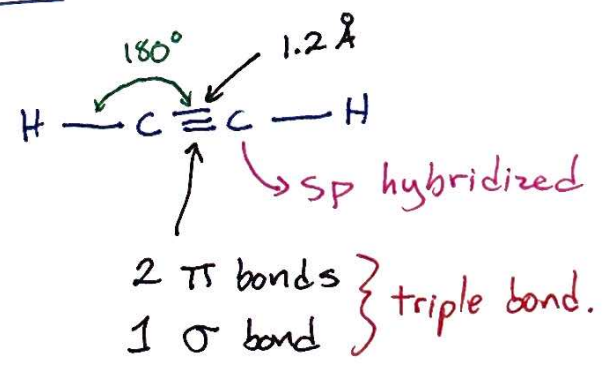 180° 1.2 Å
H — C ≡ C — H
sp hybridized
2 π bonds
1 σ bond } triple bond.